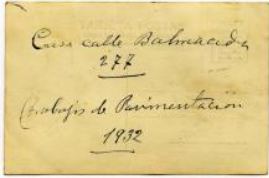 Casa calle Balmaceda
277
Trabajos de Pavimentación
1932